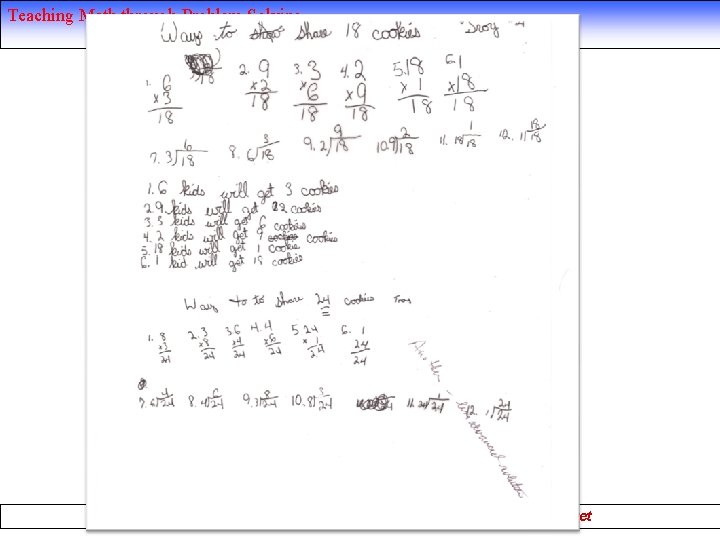 Teaching Math through Problem Solving
Ways to share 18 cookies Troy
1. 6 x3 18
2. 9 x2 18
3. 3 x6 18
4. 2 x9 18
5. 18 x1 18
6. 1 x18 18
7. 3√18 6
8. 6√18 3
9. 2√18 9
10. 9√18 2
11. 18√18 1
12. 1√18 18
1. 6 kids will get 3 cookies
2. 9 kids will get 2 cookies
3. 3 kids will get 6 cookies
4. 2 kids will get 9 cookies
5. 18 kids will get 1 cookie
6. 1 kid will get 18 cookies
Ways to to share 24 cookies
1. 8 x3 24
2. 3 x8 24
3. 6 x4 24
4. 4 x6 24
5. 24 x1 24
6. 1 24 24
7. 6√24 4
8. 4√24 6
9. 3√24 8
10. 8√24 3
11. 24√24 1
12. 1√24 24
Another
et